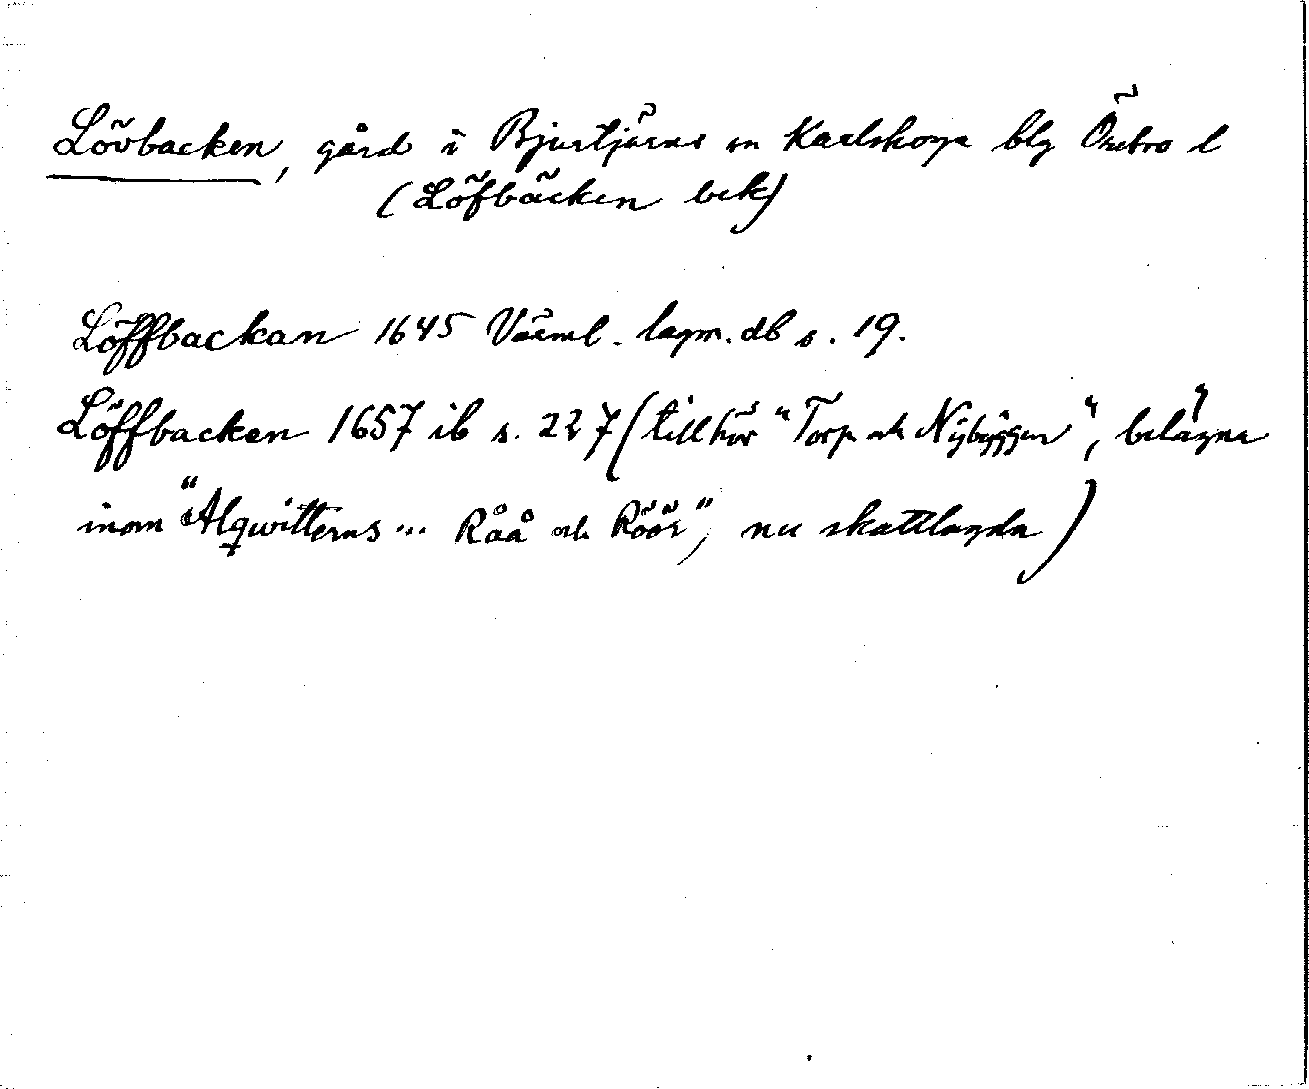 Lövbacken, gård i Bjurtjärns sn Karlskoga blg Örebro l
(Löfbäcken bek)
Löffbackan 1645 Värml. lagm. db s. 19.
Löffbacken 1657 ib s. 227 (tillhör "Torp och Nybÿggen", belägna
inom "Alqwitterns... Råå och Röör", nu skattlagda)